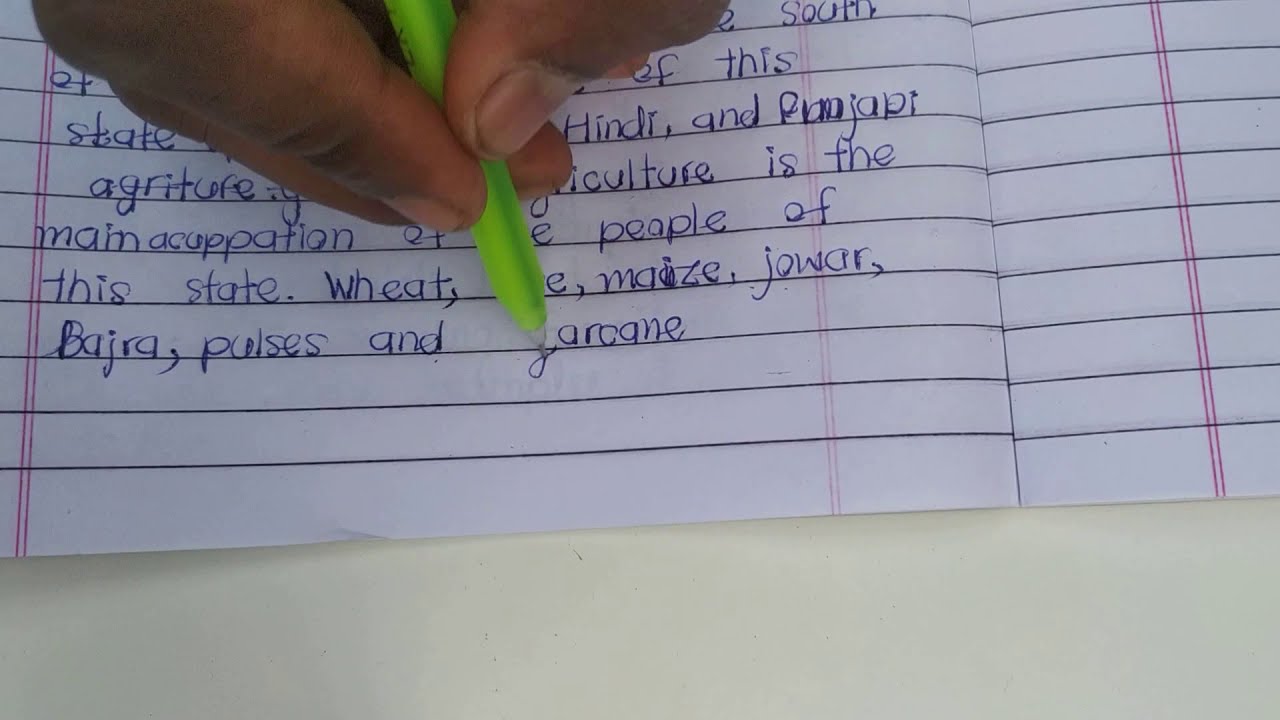 South
of this
state Hindi, and Punjapi
agriture. iculture is the
main acuppation of peaple of
this state. Wheat, maize, jowar,
Bajra, pulses and garcane